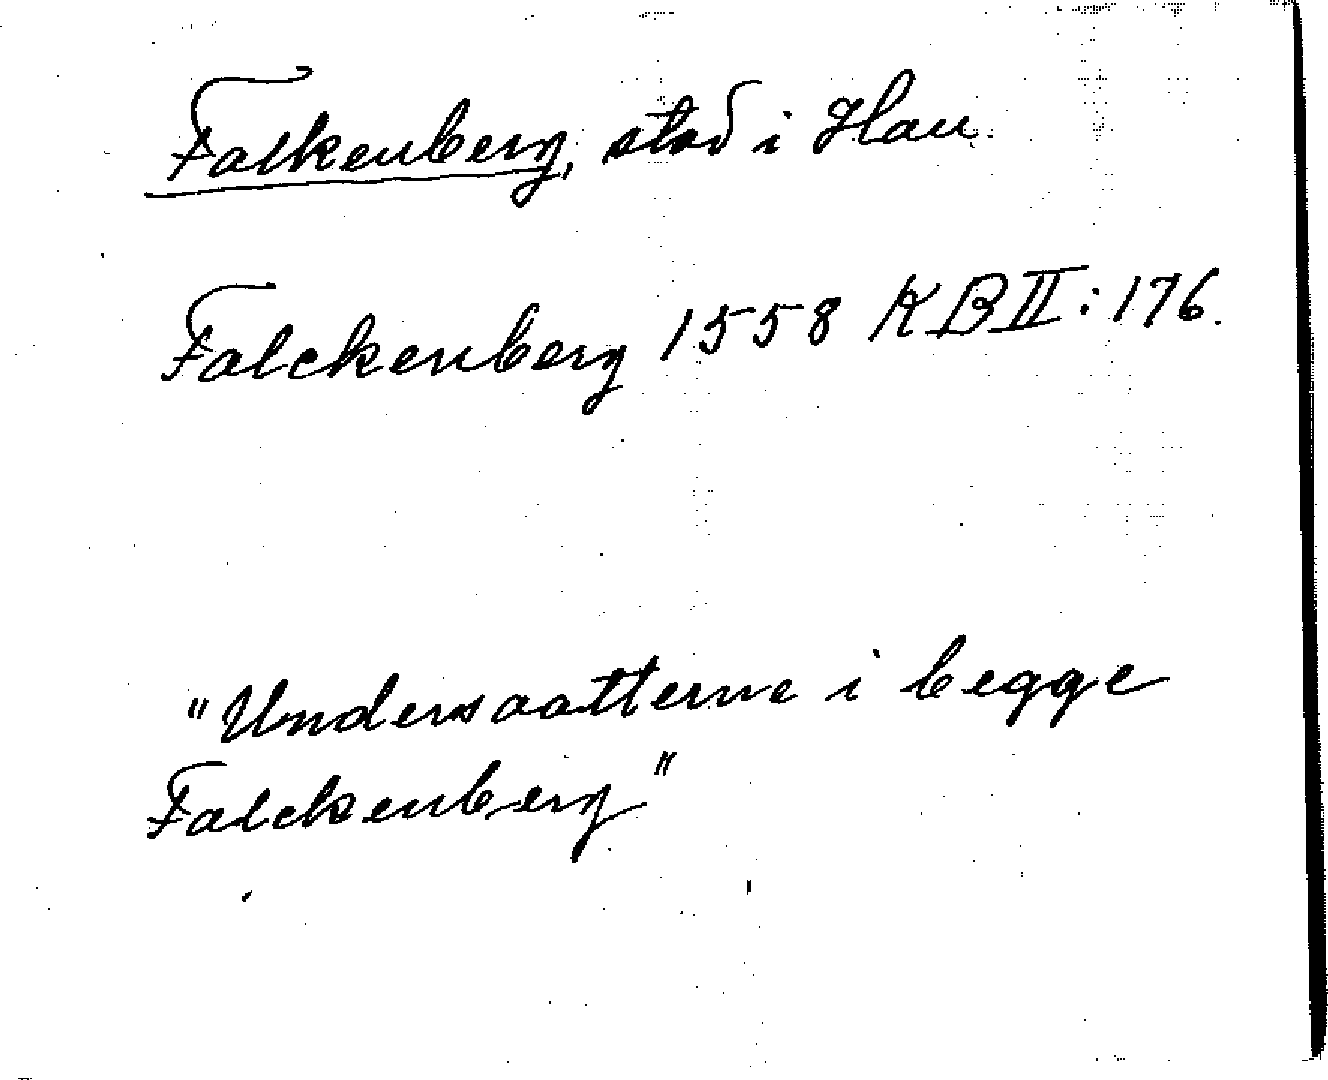 Falkenberg, stad i Hall.
Falckenberg 1558 KB II:176.
"Undersaatterne i begge
Falckenberg"